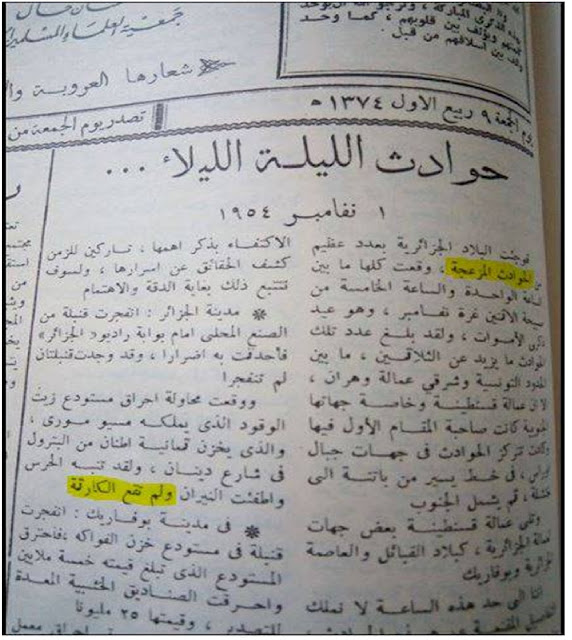 لسان حال
جمعية العلماء المسلمين
شعارها العروبة والا
هذه الذكرى المباركة ، ونرجو الله ان يوحد
كلمتهم ويؤلف بين قلوبهم ، كما وحد
وألف بين أسلافهم من قبل
يوم الجمعة ٩ ربيع الاول ١٣٧٤ هـ
تصدر يوم الجمعة من
حوادث الليلة الليلاء ...
١ نفامبر ١٩٥٤
فوجئت البلاد الجزائرية بعدد عظيم
من الحوادث المزعجة ، وقعت كلها ما بين
الساعة الواحدة والساعة الخامسة من
صبيحة الاثنين غرة نفامبر ، وهو عيد
ذكرى الأموات ، ولقد بلغ عدد تلك
الحوادث ما يزيد عن الثلاثين ، ما بين
الحدود التونسية وشرقي عمالة وهران ،
لا ان عمالة قسنطينة وخاصة جهاتها
الجنوبية كانت صاحبة المقام الأول فيها
وكانت تتركز الحوادث في جهات جبال
اوراس ، في خط يسير من باتنة الى
خنشلة ، ثم يشمل الجنوب
وتلى عمالة قسنطينة بعض جهات
العمالة الجزائرية ، كبلاد القبائل والعاصمة
الجزائرية وبوفاريك
اننا الى حد هذه الساعة لا نملك
التفاصيل المقنعة
الاكتفاء بذكر اهمها ، تاركين للزمن
كشف الحقائق عن اسرارها ، ولسوف
نتتبع ذلك بغاية الدقة والاهتمام
* مدينة الجزائر : انفجرت قنبلة من
الصنع المحلى امام بوابة راديو «الجزائر»
فأحدثت به اضرارا ، وقد وجدت قنبلتان
لم تنفجرا
ووقعت محاولة احراق مستودع زيت
الوقود الذى يملكه مسيو مورى ،
والذى يخزن ثمانية اطنان من البترول
فى شارع دينان ، ولقد تنبه الحرس
واطفئت النيران ولم تقع الكارثة
* فى مدينة بوفاريك : انفجرت
قنبلة فى مستودع خزن الفواكه ،فاحترق
المستودع الذى تبلغ قيمته خمسة ملايين
واحرقت الصناديق الخشبية المعدة
للتصدير ، وقيمتها ٢٥ مليونا
احراق معمل